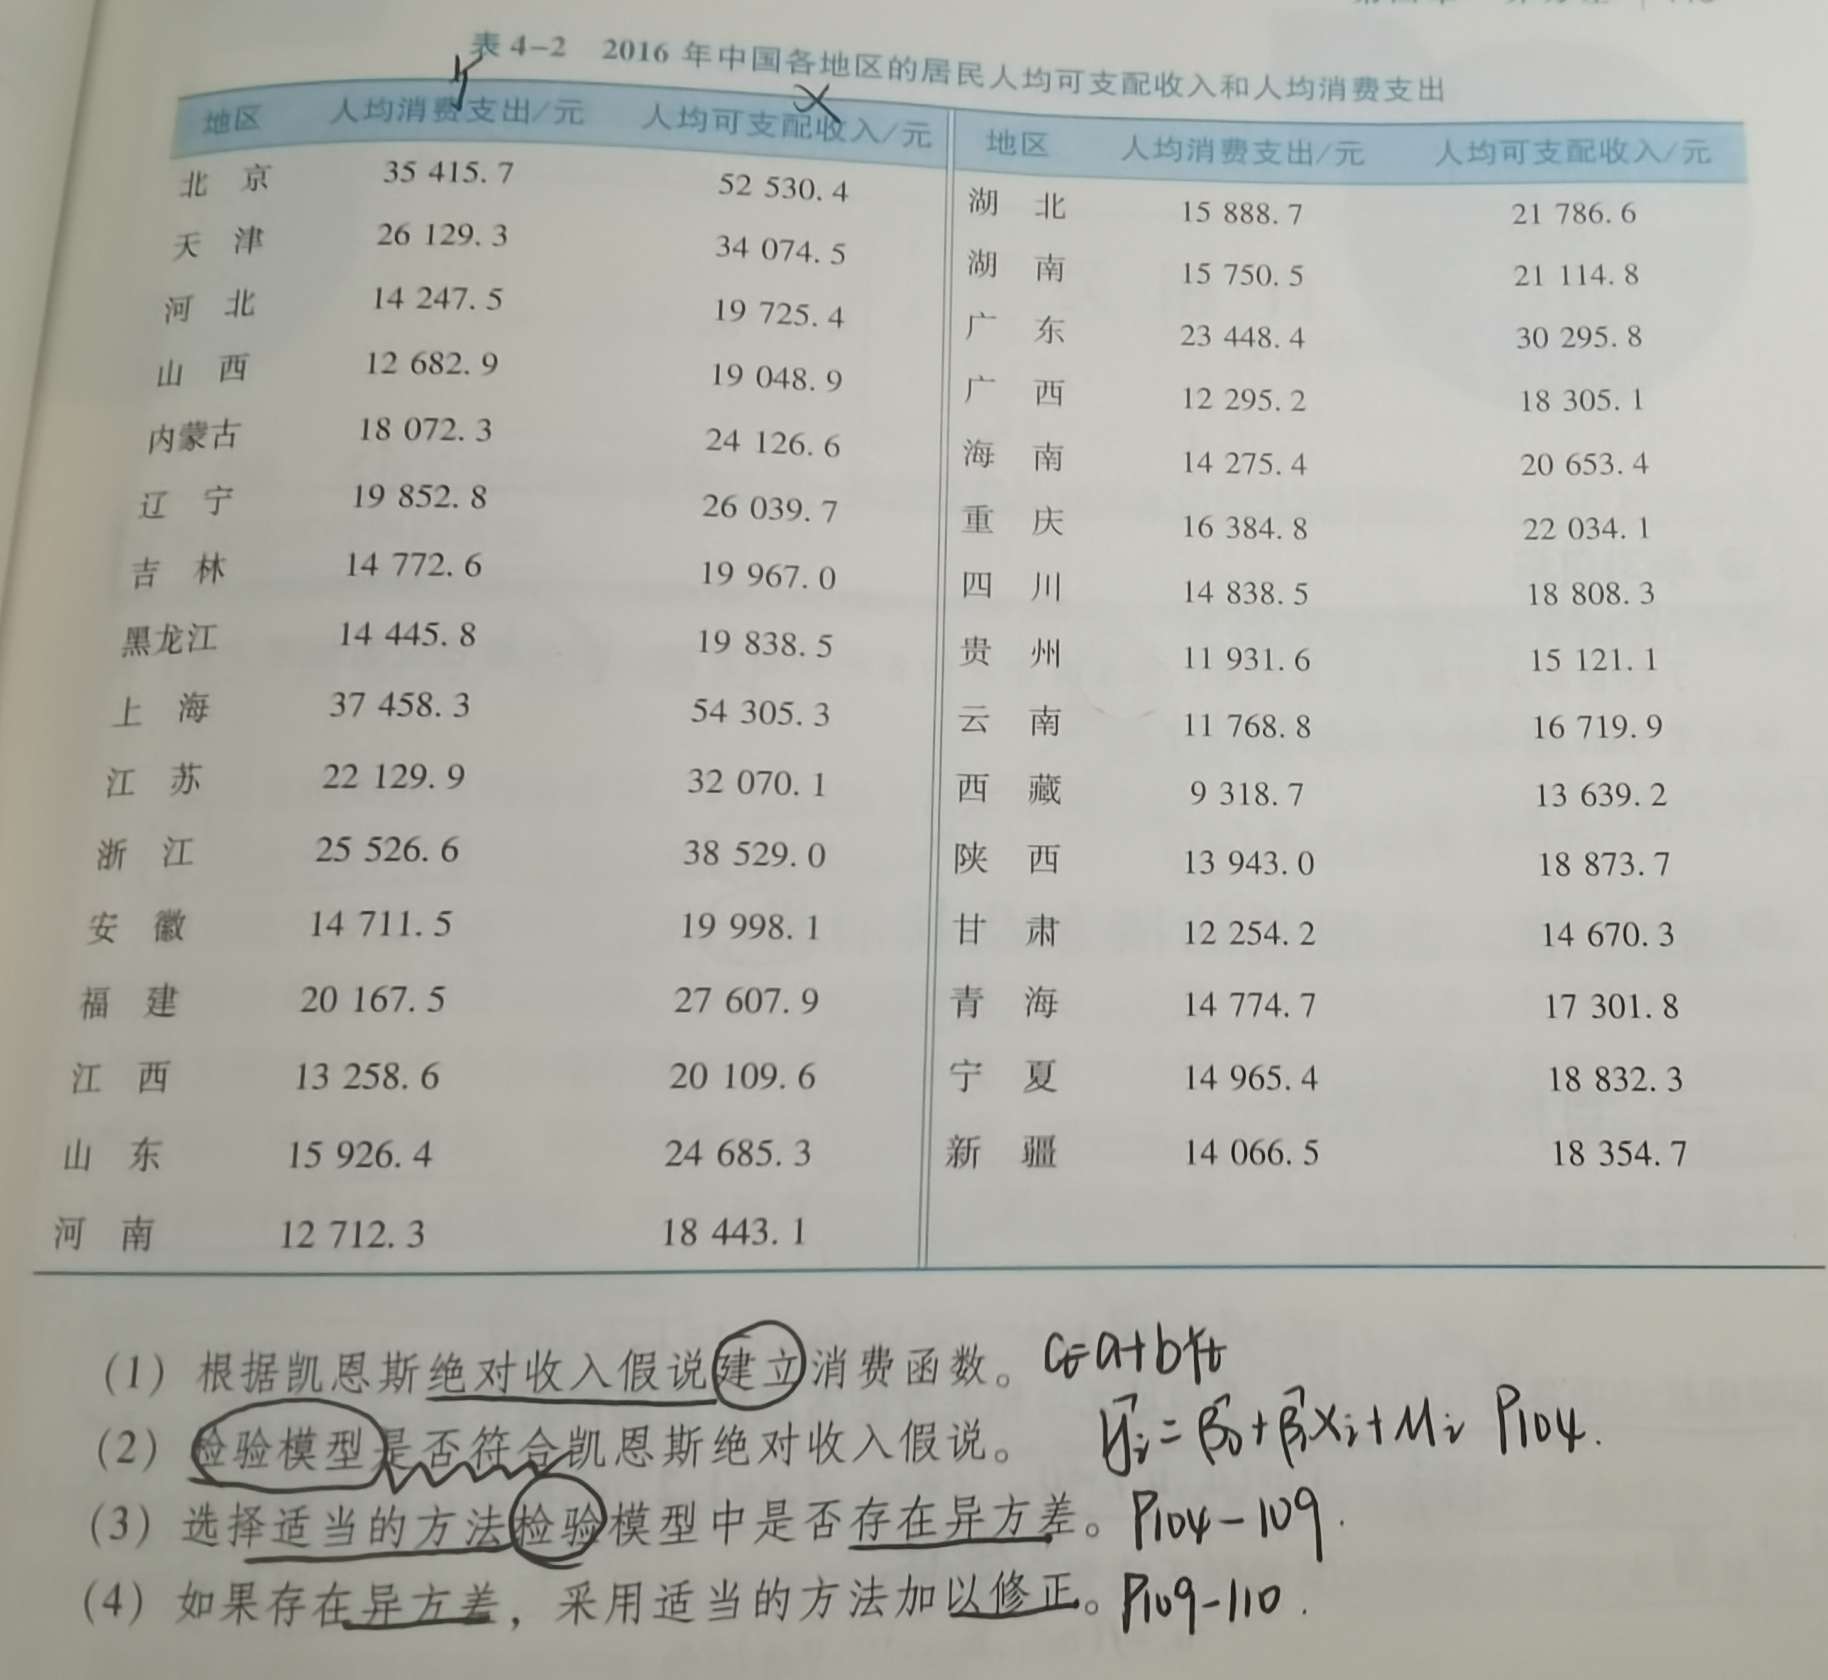 表 4-2 2016 年中国各地区的居民人均可支配收入和人均消费支出
y x
地区 人均消费支出/元 人均可支配收入/元 地区 人均消费支出/元 人均可支配收入/元
北 京 35 415.7 52 530.4 湖 北 15 888.7 21 786.6
天 津 26 129.3 34 074.5 湖 南 15 750.5 21 114.8
河 北 14 247.5 19 725.4 广 东 23 448.4 30 295.8
山 西 12 682.9 19 048.9 广 西 12 295.2 18 305.1
内蒙古 18 072.3 24 126.6 海 南 14 275.4 20 653.4
辽 宁 19 852.8 26 039.7 重 庆 16 384.8 22 034.1
吉 林 14 772.6 19 967.0 四 川 14 838.5 18 808.3
黑龙江 14 445.8 19 838.5 贵 州 11 931.6 15 121.1
上 海 37 458.3 54 305.3 云 南 11 768.8 16 719.9
江 苏 22 129.9 32 070.1 西 藏 9 318.7 13 639.2
浙 江 25 526.6 38 529.0 陕 西 13 943.0 18 873.7
安 徽 14 711.5 19 998.1 甘 肃 12 254.2 14 670.3
福 建 20 167.5 27 607.9 青 海 14 774.7 17 301.8
江 西 13 258.6 20 109.6 宁 夏 14 965.4 18 832.3
山 东 15 926.4 24 685.3 新 疆 14 066.5 18 354.7
河 南 12 712.3 18 443.1
(1) 根据凯恩斯绝对收入假说建立消费函数。 Ct=a+bYt
(2) 检验模型是否符合凯恩斯绝对收入假说。 yi=β0+β1xi+Mi P104.
(3) 选择适当的方法检验模型中是否存在异方差。 P104-109.
(4) 如果存在异方差，采用适当的方法加以修正。 P109-110.